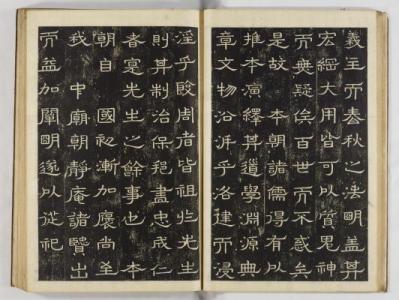 義主而春秋之法明蓋其
宏綱大用皆可以質鬼神
而無疑俟百世而不惑矣
是故 本朝諸儒得有以
推本演繹其道學淵源典
章文物沿泝乎洛建而浸
淫乎殷周者皆祖先生
則其制治保邦盡忠成仁
者寔先生之餘事也 本
朝自 國初漸加褒尚至
我 中廟朝靜庵諸賢出
而益加闡明遂以從祀